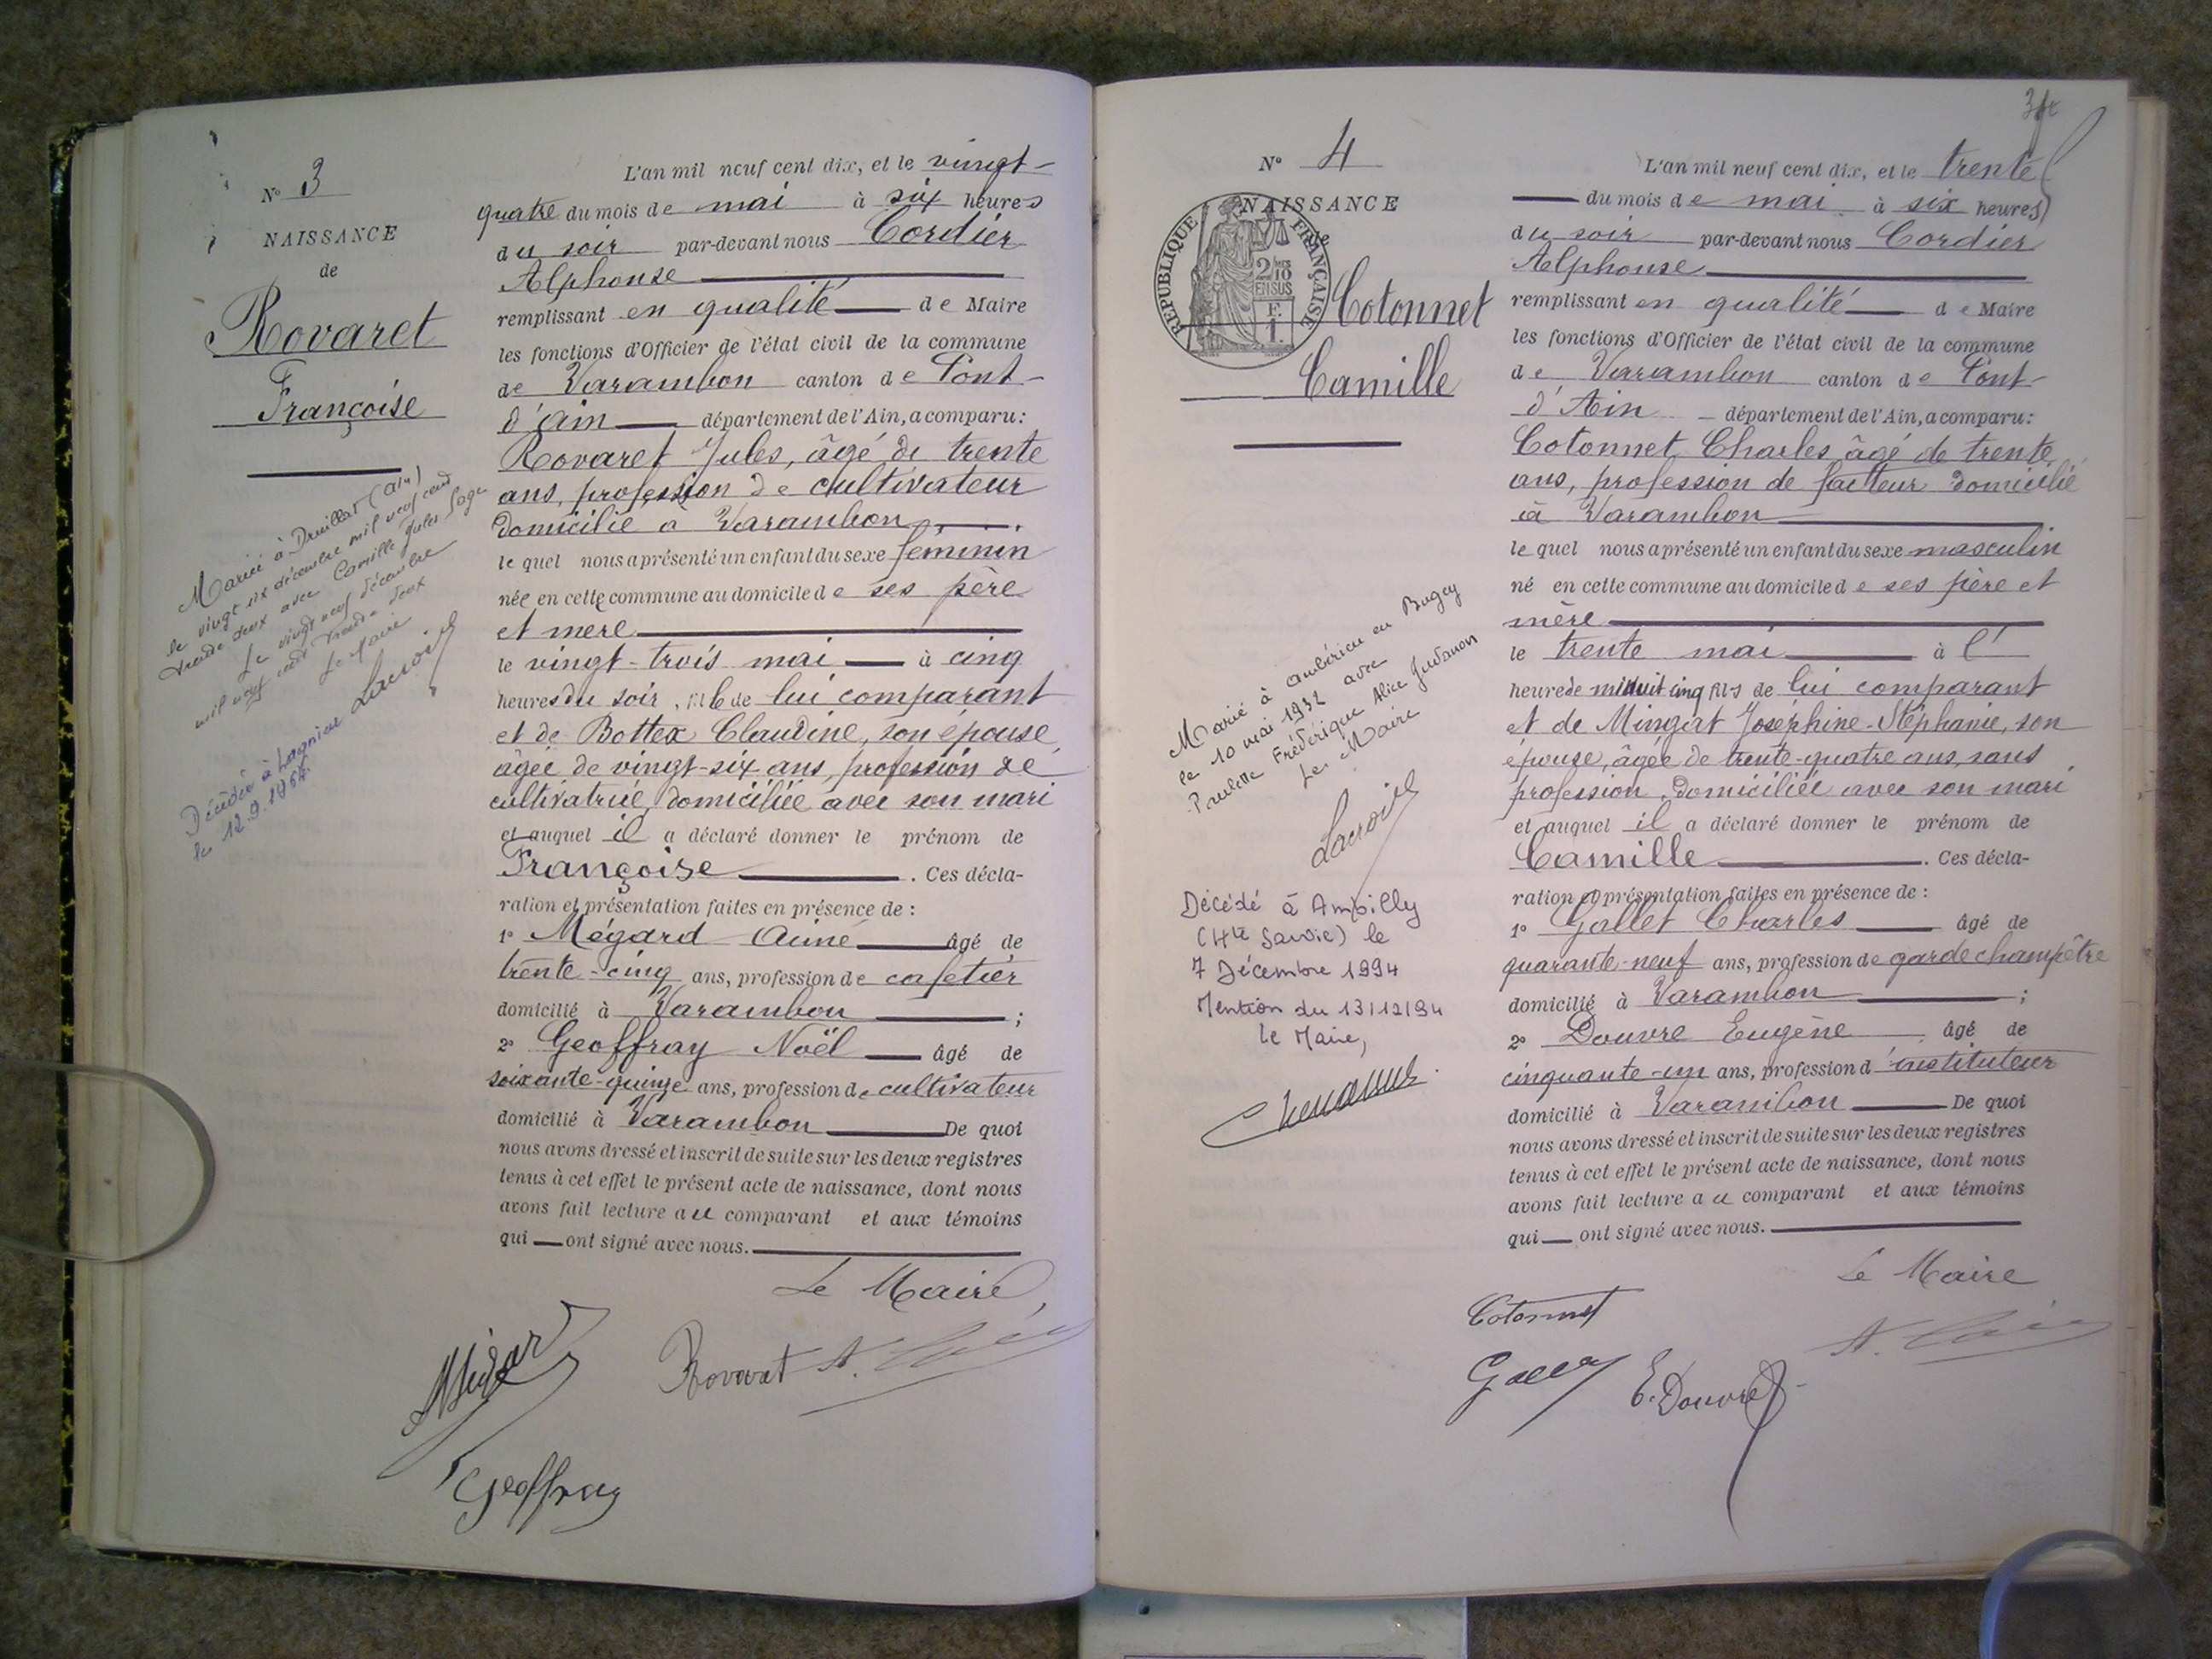 N° 3
NAISSANCE
de
Rovaret
Françoise
Mariée à Druillat (Ain)
le vingt six décembre mil neuf cent
trente deux avec Camille Jules Page
Le vingt neuf décembre
mil neuf cent trente deux
Le Maire
Lacroix
Décédée à Lagnieu
le 12.9.1984.
L'an mil neuf cent dix, et le vingt-
quatre du mois de mai à six heures
du soir par-devant nous Cordier
Alphonse
remplissant en qualité de Maire
les fonctions d'Officier de l'état civil de la commune
de Varambon canton de Pont-
d'ain département de l'Ain, a comparu:
Rovaret Jules, âgé de trente
ans, profession de cultivateur
domicilié à Varambon
le quel nous a présenté un enfant du sexe féminin
née en cette commune au domicile de ses père
et mère
le vingt-trois mai à cinq
heures du soir, fille de lui comparant
et de Bottex Claudine, son épouse,
âgée de vingt-six ans, profession de
cultivatrice, domiciliée avec son mari
et auquel il a déclaré donner le prénom de
Françoise. Ces décla-
ration et présentation faites en présence de :
1° Mégard Aimé âgé de
trente-cinq ans, profession de cafetier
domicilié à Varambon ;
2° Geoffray Noël âgé de
soixante-quinze ans, profession de cultivateur
domicilié à Varambon De quoi
nous avons dressé et inscrit de suite sur les deux registres
tenus à cet effet le présent acte de naissance, dont nous
avons fait lecture au comparant et aux témoins
qui ont signé avec nous.
Le Maire,
Mégard
Rovaret
Geoffray
N° 4
NAISSANCE
de
REPUBLIQUE FRANÇAISE
2/10
EN SUS
F.
1.
Cotonnet
Camille
Marié à Ambérieu en Bugey
le 10 mai 1932 avec
Paulette Frédérique Alice
Le Maire
Lacroix
Décédé à Ambilly
(Hte Savoie) le
7 Décembre 1994
Mention du 13/12/94
le Maire,
L'an mil neuf cent dix, et le trente
du mois de mai à six heures
du soir par-devant nous Cordier
Alphonse
remplissant en qualité de Maire
les fonctions d'Officier de l'état civil de la commune
de Varambon canton de Pont-
d'Ain département de l'Ain, a comparu:
Cotonnet Charles âgé de trente
ans, profession de facteur domicilié
à Varambon
le quel nous a présenté un enfant du sexe masculin
né en cette commune au domicile de ses père et
mère
le trente mai à l'
heure de minuit cinq fils de lui comparant
et de Mingat Joséphine-Stéphanie, son
épouse, âgée de trente-quatre ans, sans
profession, domiciliée avec son mari
et auquel il a déclaré donner le prénom de
Camille. Ces décla-
ration et présentation faites en présence de :
1° Gallet Charles âgé de
quarante-neuf ans, profession de garde champêtre
domicilié à Varambon ;
2° Douvre Eugène âgé de
cinquante-un ans, profession d'instituteur
domicilié à Varambon De quoi
nous avons dressé et inscrit de suite sur les deux registres
tenus à cet effet le présent acte de naissance, dont nous
avons fait lecture au comparant et aux témoins
qui ont signé avec nous.
Le Maire
Cotonnet
E. Douvre